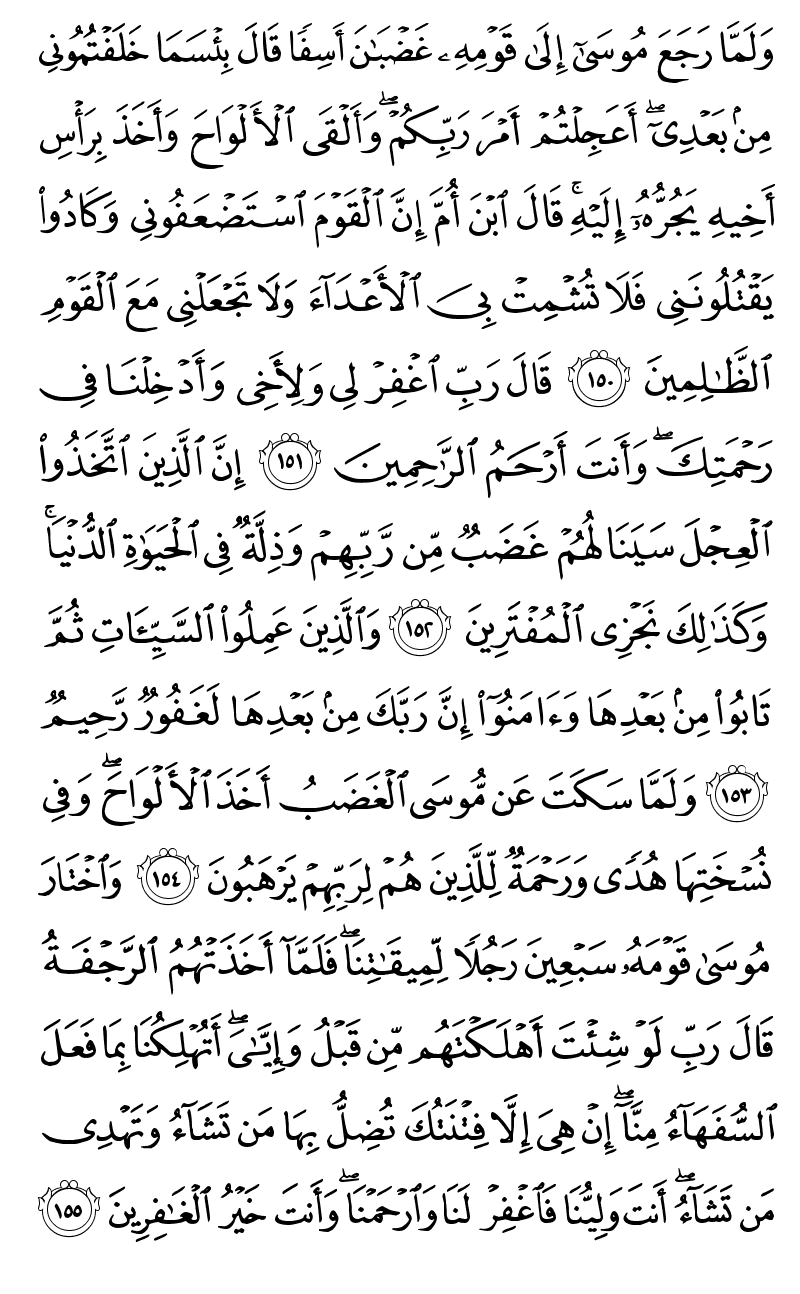 وَلَمَّا رَجَعَ مُوسَىٰٓ إِلَىٰ قَوْمِهِۦ غَضْبَٰنَ أَسِفًا قَالَ بِئْسَمَا خَلَفْتُمُونِي
مِنۢ بَعْدِيٓۖ أَعَجِلْتُمْ أَمْرَ رَبِّكُمْۖ وَأَلْقَى ٱلْأَلْوَاحَ وَأَخَذَ بِرَأْسِ
أَخِيهِ يَجُرُّهُۥٓ إِلَيْهِۚ قَالَ ٱبْنَ أُمَّ إِنَّ ٱلْقَوْمَ ٱسْتَضْعَفُونِي وَكَادُوا۟
يَقْتُلُونَنِي فَلَا تُشْمِتْ بِيَ ٱلْأَعْدَآءَ وَلَا تَجْعَلْنِي مَعَ ٱلْقَوْمِ
ٱلظَّٰلِمِينَ ١٥٠ قَالَ رَبِّ ٱغْفِرْ لِي وَلِأَخِي وَأَدْخِلْنَا فِي
رَحْمَتِكَۖ وَأَنتَ أَرْحَمُ ٱلرَّٰحِمِينَ ١٥١ إِنَّ ٱلَّذِينَ ٱتَّخَذُوا۟
ٱلْعِجْلَ سَيَنَالُهُمْ غَضَبٌ مِّن رَّبِّهِمْ وَذِلَّةٌ فِي ٱلْحَيَوٰةِ ٱلدُّنْيَاۚ
وَكَذَٰلِكَ نَجْزِي ٱلْمُفْتَرِينَ ١٥٢ وَٱلَّذِينَ عَمِلُوا۟ ٱلسَّيِّـَٔاتِ ثُمَّ
تَابُوا۟ مِنۢ بَعْدِهَا وَءَامَنُوٓا۟ إِنَّ رَبَّكَ مِنۢ بَعْدِهَا لَغَفُورٌ رَّحِيمٌ
١٥٣ وَلَمَّا سَكَتَ عَن مُّوسَى ٱلْغَضَبُ أَخَذَ ٱلْأَلْوَاحَۖ وَفِي
نُسْخَتِهَا هُدًى وَرَحْمَةٌ لِّلَّذِينَ هُمْ لِرَبِّهِمْ يَرْهَبُونَ ١٥٤ وَٱخْتَارَ
مُوسَىٰ قَوْمَهُۥ سَبْعِينَ رَجُلًا لِّمِيقَٰتِنَاۖ فَلَمَّآ أَخَذَتْهُمُ ٱلرَّجْفَةُ
قَالَ رَبِّ لَوْ شِئْتَ أَهْلَكْتَهُم مِّن قَبْلُ وَإِيَّٰيَۖ أَتُهْلِكُنَا بِمَا فَعَلَ
ٱلسُّفَهَآءُ مِنَّآۖ إِنْ هِيَ إِلَّا فِتْنَتُكَ تُضِلُّ بِهَا مَن تَشَآءُ وَتَهْدِي
مَن تَشَآءُۖ أَنتَ وَلِيُّنَا فَٱغْفِرْ لَنَا وَٱرْحَمْنَاۖ وَأَنتَ خَيْرُ ٱلْغَٰفِرِينَ ١٥٥